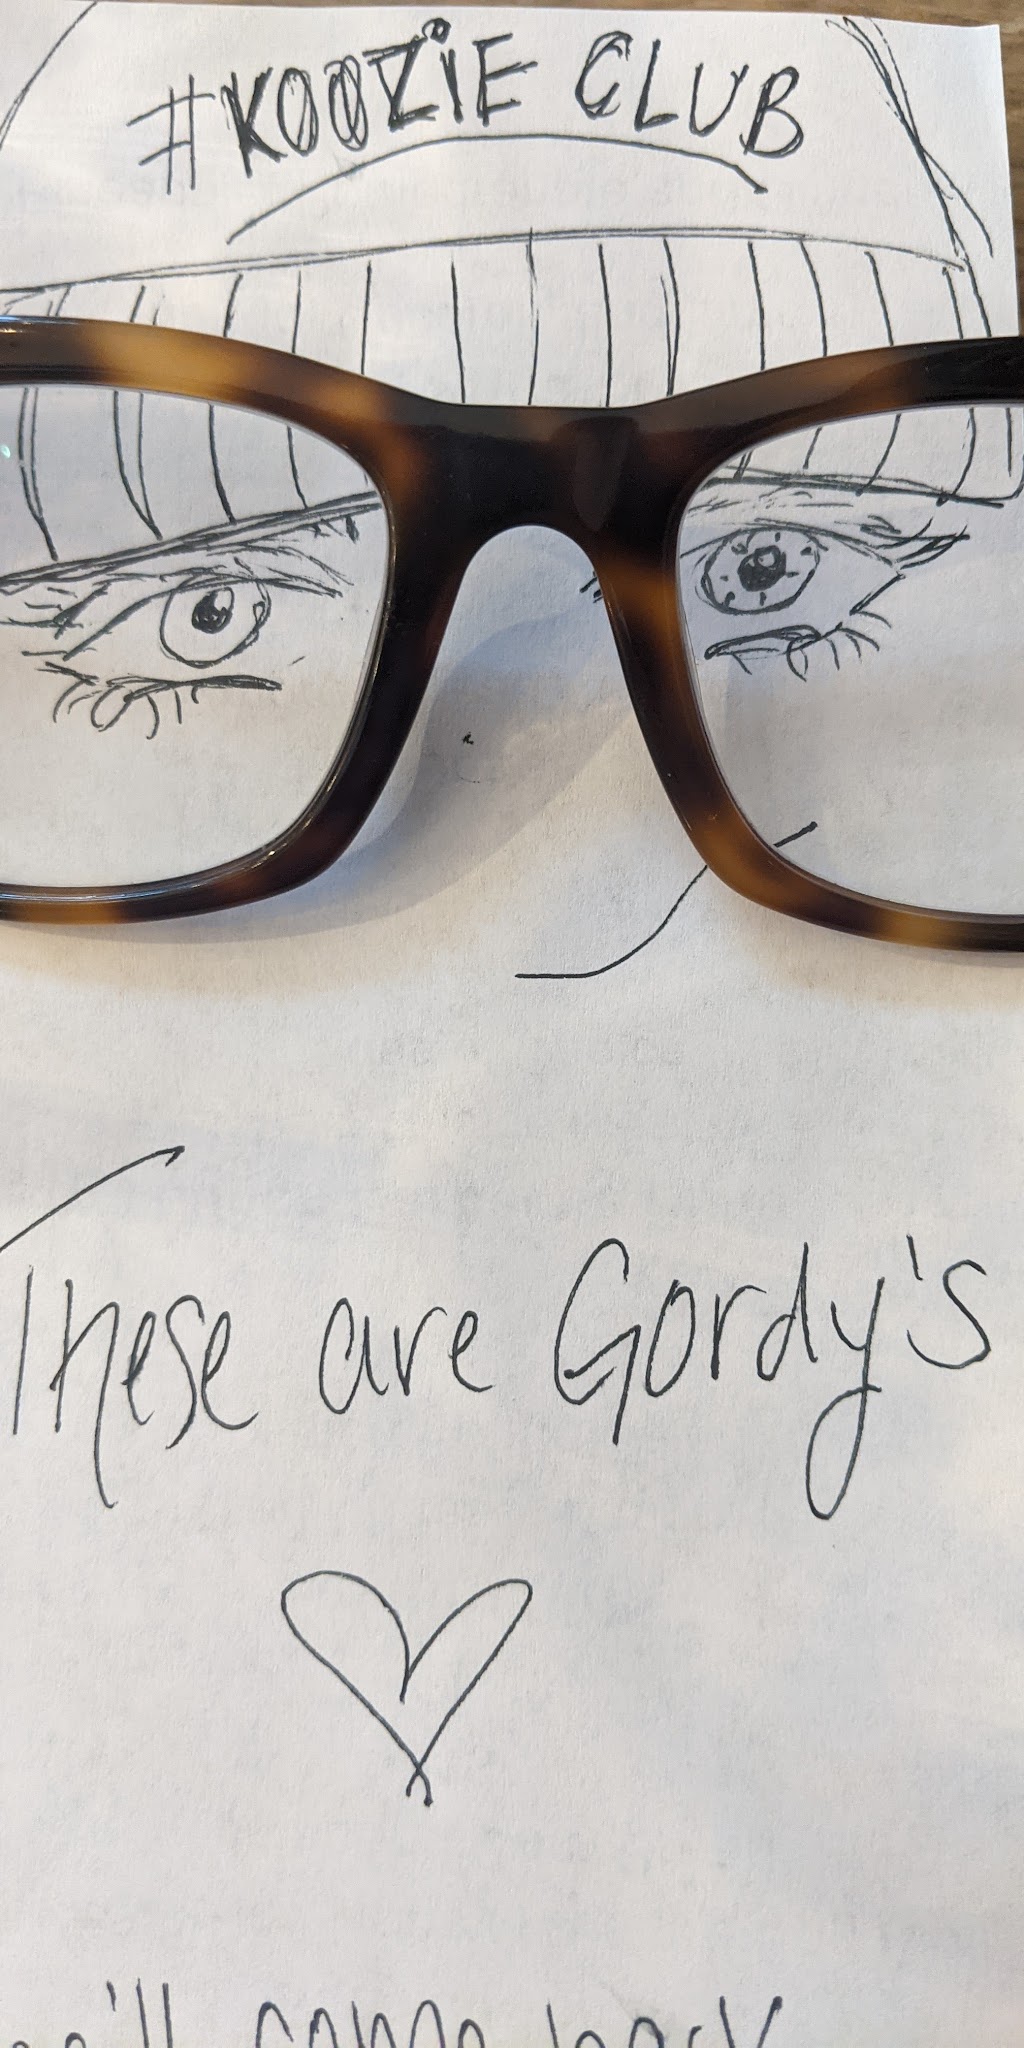 #KOOZiE CLUB
These are Gordy's
'll come back